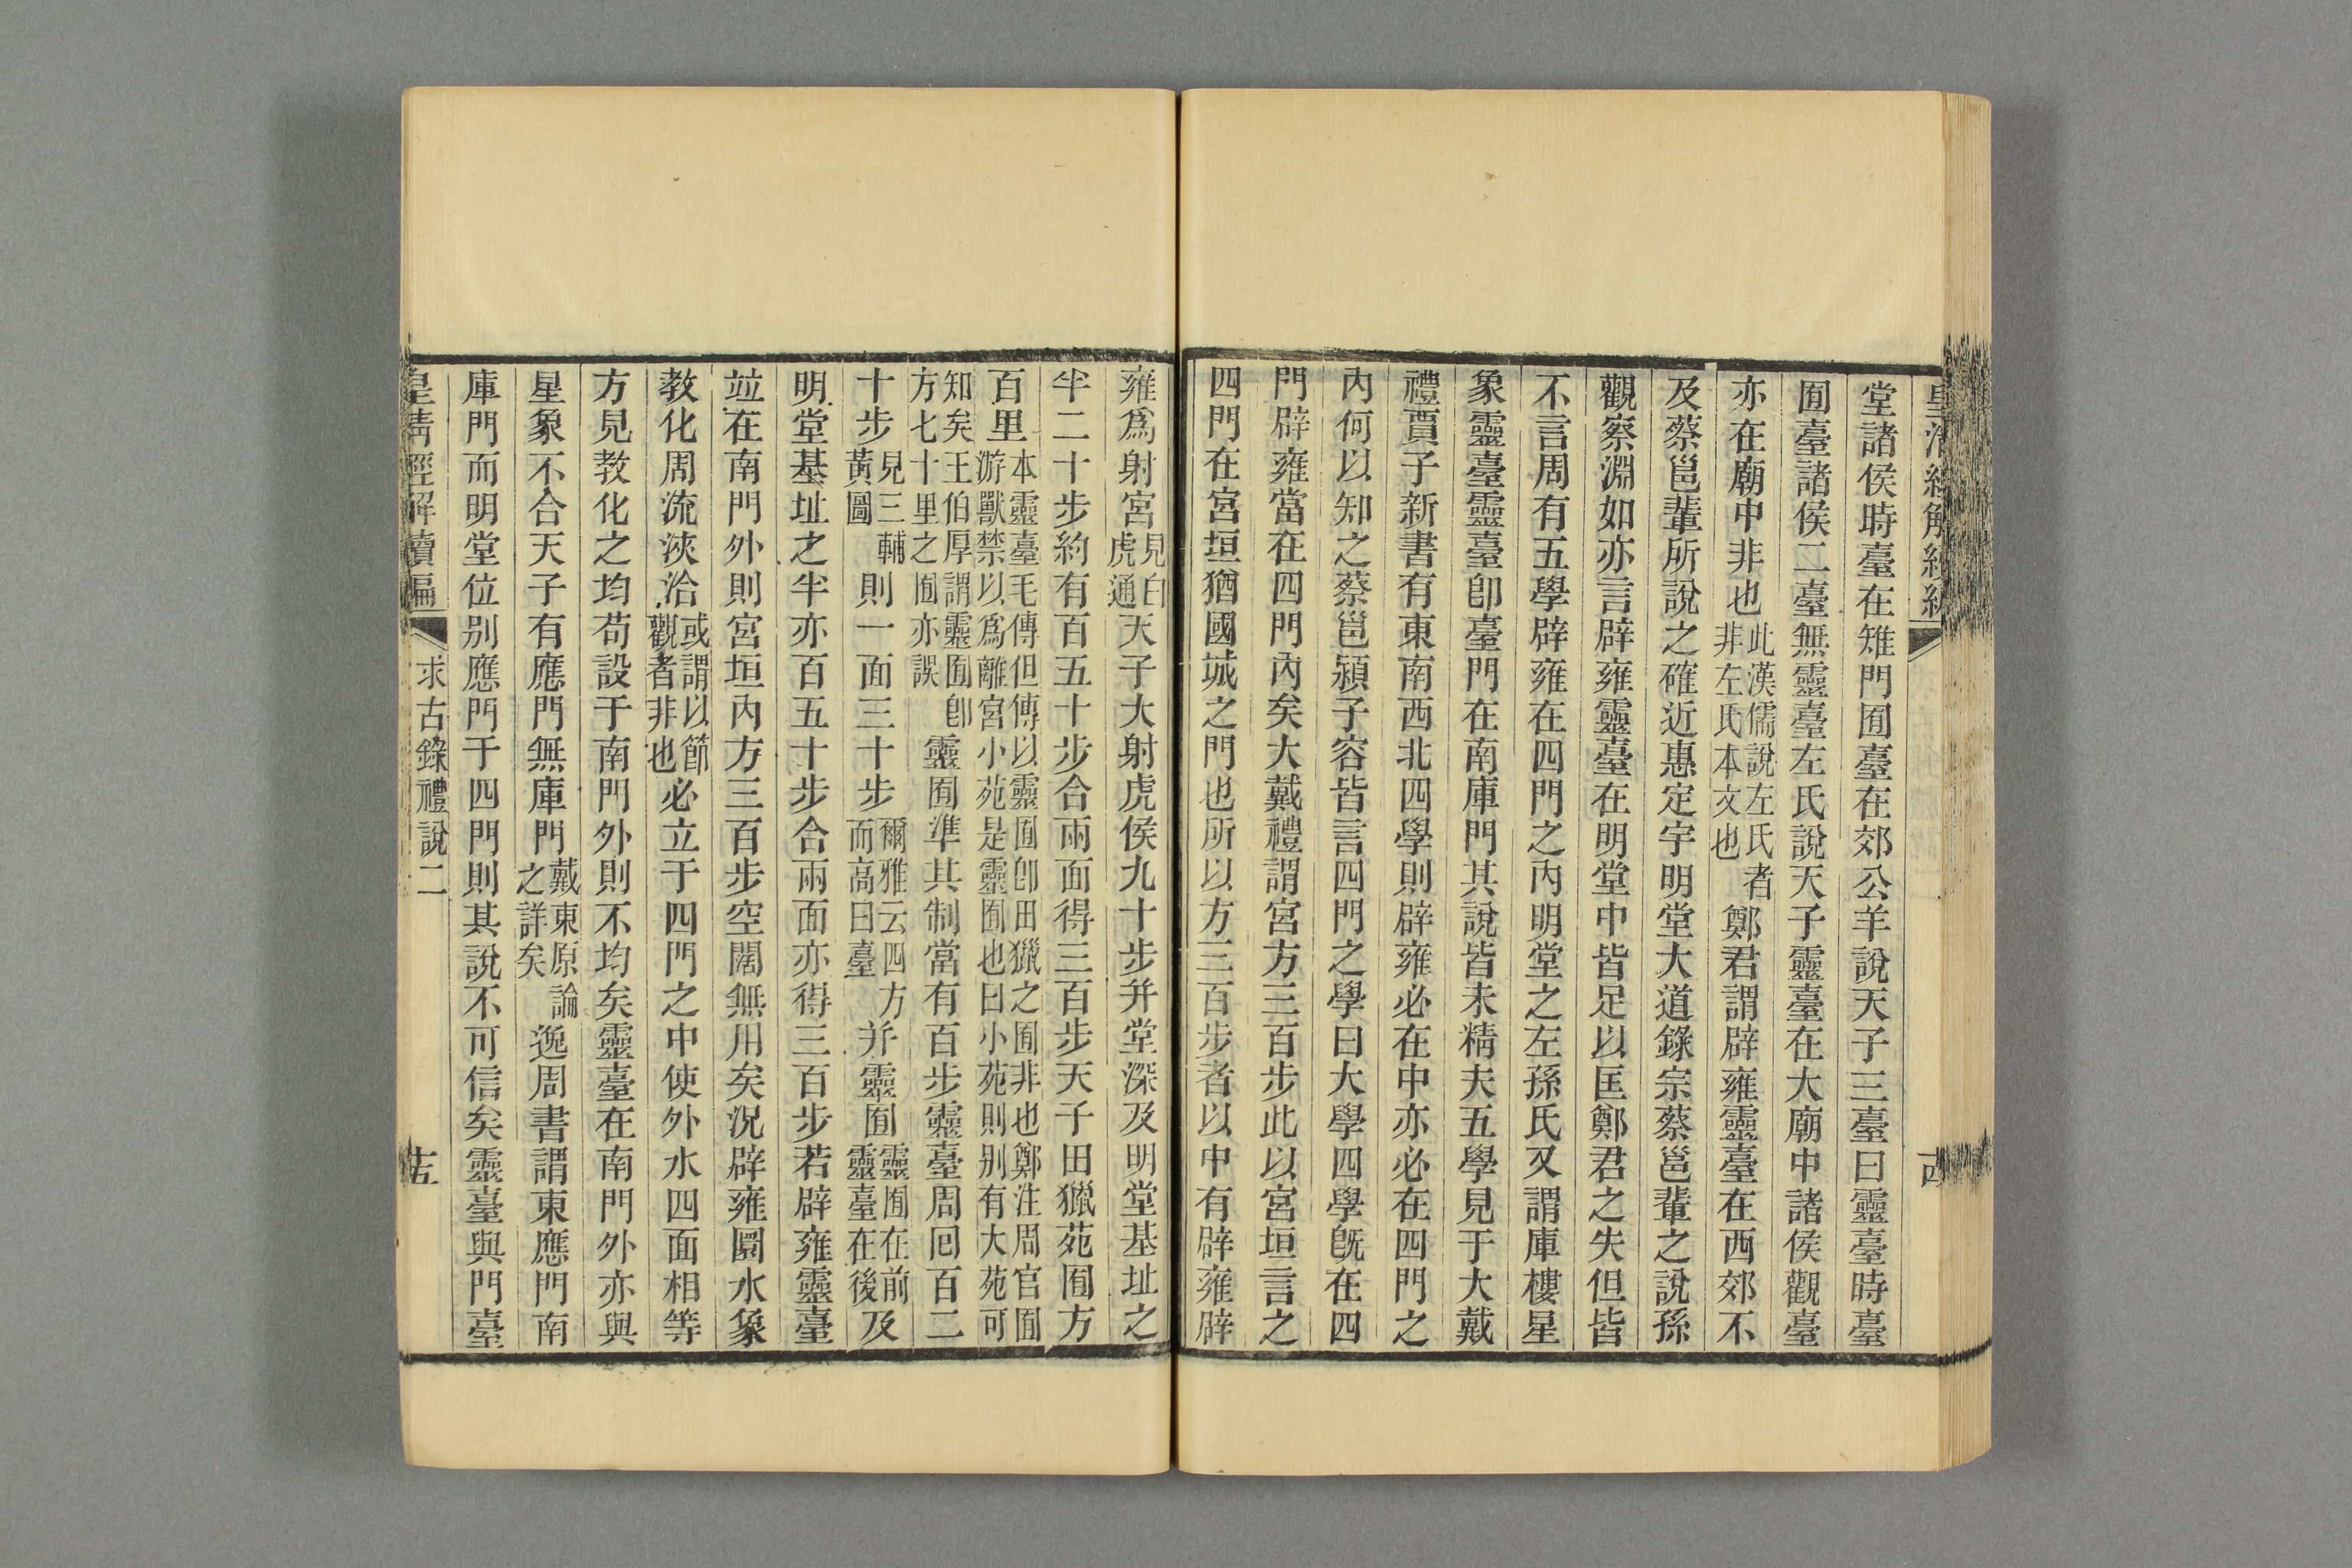 皇清經解續編
堂諸侯時臺在雉門囿臺在郊公羊說天子三臺曰靈臺時臺
囿臺諸侯二臺無靈臺左氏說天子靈臺在大廟中諸侯觀臺
亦在廟中非也此漢儒說左氏者非左氏本文也鄭君謂辟雍靈臺在西郊不
及蔡邕輩所說之確近惠定宇明堂大道錄宗蔡邕輩之說孫
觀察淵如亦言辟雍靈臺在明堂中皆足以匡鄭君之失但皆
不言周有五學辟雍在四門之內明堂之左孫氏又謂庫樓星
象靈臺靈臺卽臺門在南庫門其說皆未精夫五學見于大戴
禮賈子新書有東南西北四學則辟雍必在中亦必在四門之
內何以知之蔡邕潁子容皆言四門之學曰大學四學旣在四
門辟雍當在四門內矣大戴禮謂宮方三百步此以宮垣言之
四門在宮垣猶國城之門也所以方三百步者以中有辟雍辟
雍爲射宮見白虎通天子大射虎侯九十步并堂深及明堂基址之
半二十步約有百五十步合兩面得三百步天子田獵苑囿方
百里本靈臺毛傳但傳以靈囿卽田獵之囿非也鄭注周官囿游獸禁以爲離宮小苑是靈囿也曰小苑則别有大苑可
知矣王伯厚謂靈囿卽方七十里之囿亦誤靈囿準其制當有百步靈臺周囘百二
十步見三輔黃圖則一面三十步爾雅云四方而高曰臺并靈囿靈囿在前靈臺在後及
明堂基址之半亦百五十步合兩面亦得三百步若辟雍靈臺
竝在南門外則宮垣內方三百步空闊無用矣況辟雍圜水象
教化周流浹洽或謂以節觀者非也必立于四門之中使外水四面相等
方見教化之均苟設于南門外則不均矣靈臺在南門外亦與
星象不合天子有應門無庫門戴東原論之詳矣逸周書謂東應門南
庫門而明堂位别應門于四門則其說不可信矣靈臺與門臺
皇清經解續編 求古錄禮說二 十五